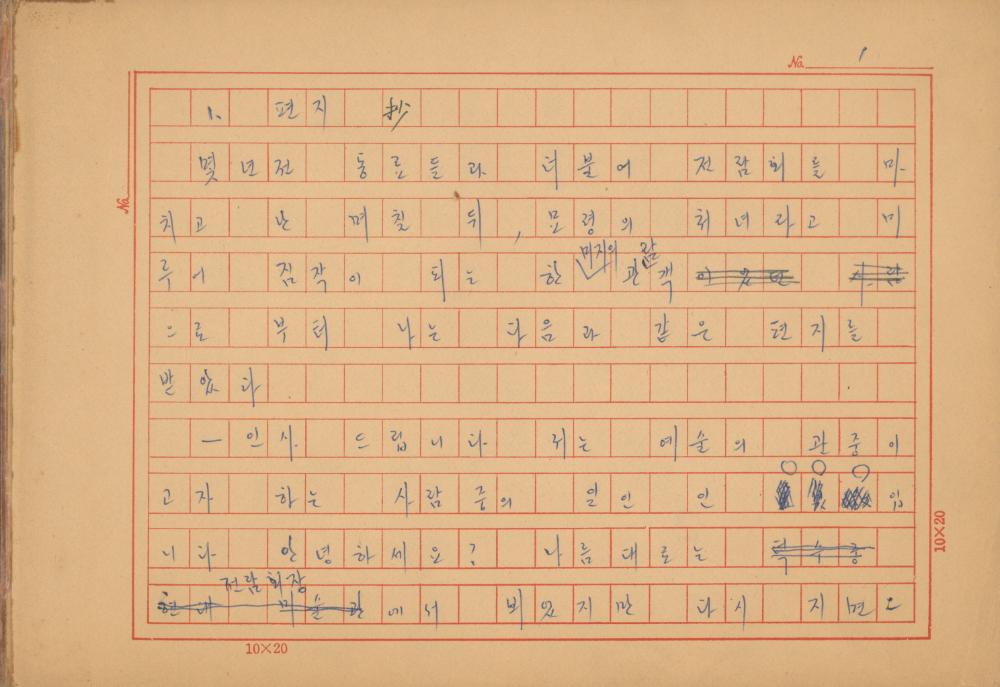 No. 1
1. 편지 抄
몇 년 전 동료들과 더불어 전람회를 마
치고 난 며칠 뒤, 묘령의 처녀라고 미
루어 짐작이 되는 한 미지의 관람객
으로 부터 나는 다음과 같은 편지를
받았다
— 인사 드립니다 저는 예술의 관중이
고자 하는 사람 중의 일인 인 ○○○ 입
니다 안녕하세요? 나름대로는
전람회장에서 뵈었지만 다시 지면으
No.
10×20
10×20